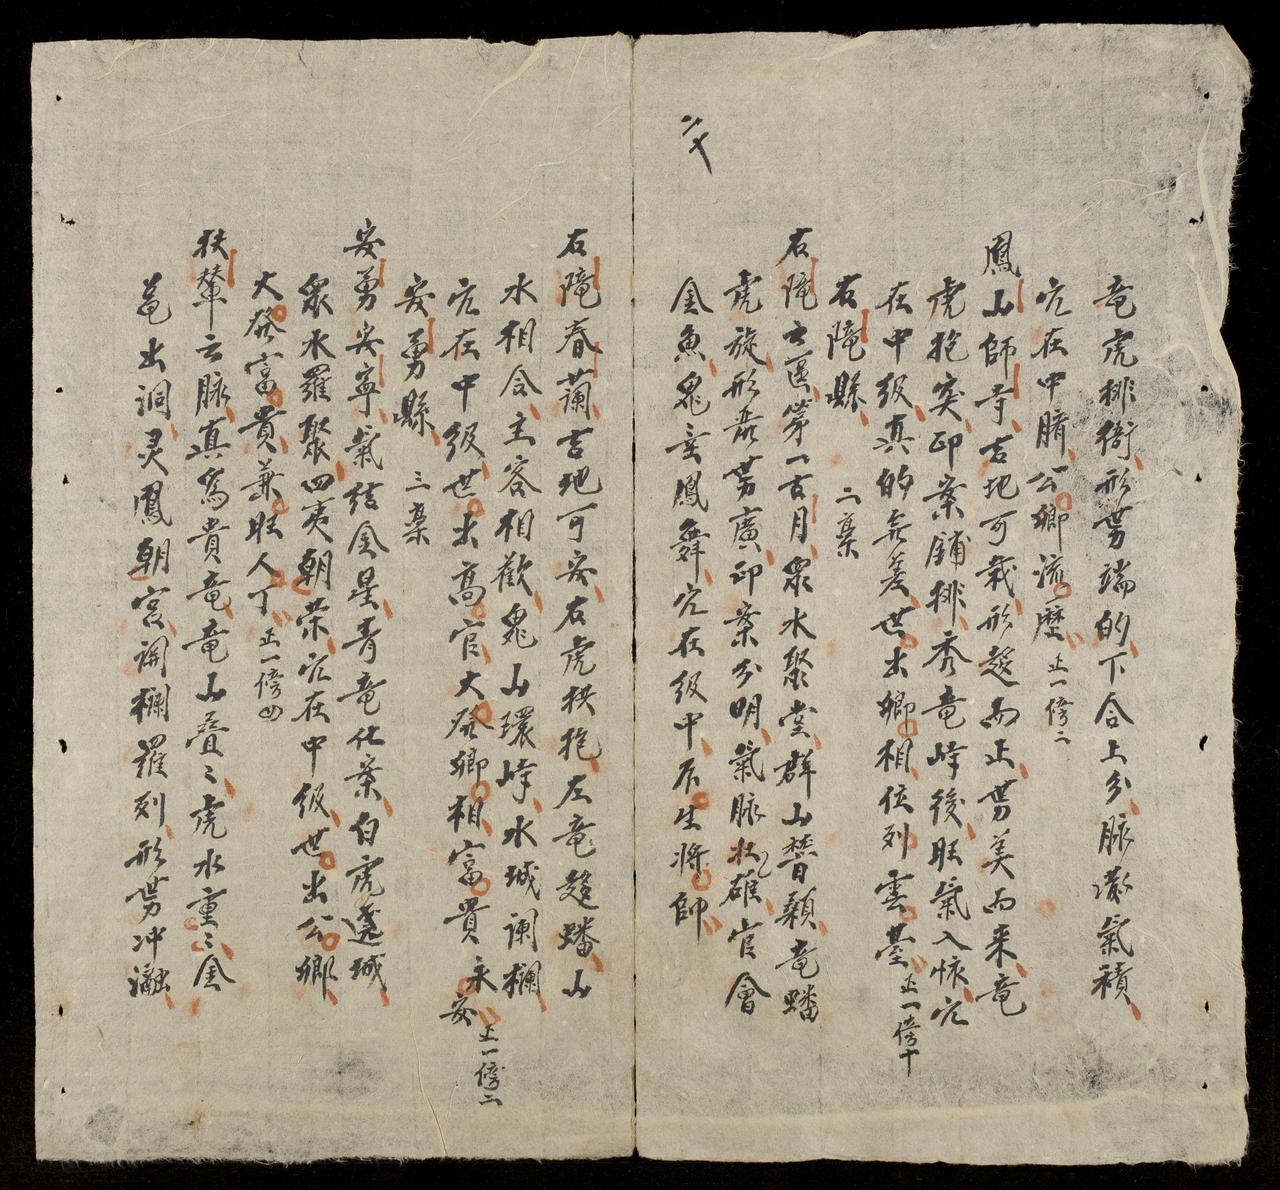 竜虎排衙形势端的下合上分脉凝氣積
穴在中腈公卿流歴正一傍二
鳳山師寺吉地可栽形趍而正势美而来竜
虎抱突印案鋪排秀竜峰後旺氣入懐穴
在中級真的無差世出卿相位列雲䑓正一傍十
右隴縣 二棄
右隴古區第一古月衆水聚堂群山聳顙竜蟠
虎旋形呑势廣印案分明氣脉壮雄官會
金魚鬼垂鳳舞穴在級中后生將帥
二十
右隴春蘭吉地可安右虎拱抱左竜趍蟠山
水相合主客相歡鬼山環峰水城闌欄
穴在中級世出髙官大發卿相富貴永安正一傍二
安勇縣 三棄
安勇安寧氣结金星青竜化案白虎遶城
衆水羅聚四夷朝荣穴在中級世出公卿
大發富貴兼旺人丁正一傍四
扶輦云脉真為貴竜竜山叠〻虎水重〻金
𠃔出洞灵鳳朝宫闭欄羅列形势冲瀜